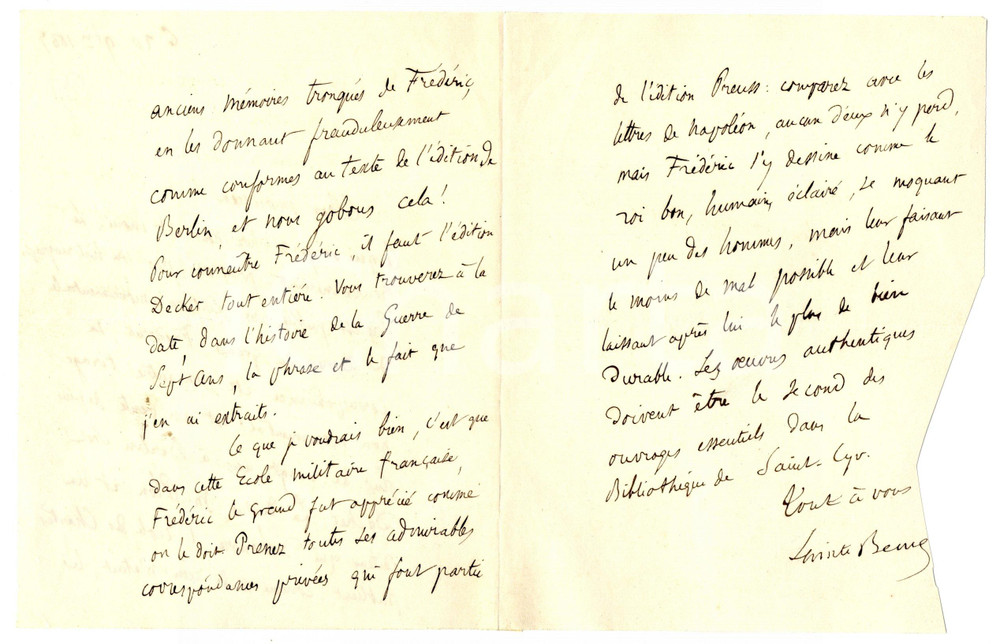 anciens mémoires tronqués de Frédéric,
en les donnant frauduleusement
comme conformes au texte de l'édition de
Berlin, et nous gobons cela!
Pour connaître Frédéric, il faut l'édition
Decker tout entière. Vous trouverez à la
date, dans l'histoire de la Guerre de
Sept ans, la phrase et le fait que
j'en ai extraits.
Ce que je voudrais bien, c'est que
dans cette Ecole militaire française,
Frédéric le Grand fut apprécié comme
on le doit. Prenez toutes ses admirables
correspondances privées qui font partie
de l'édition Preuss: comparez avec les
lettres de Napoléon, aucun d'eux n'y perd,
mais Frédéric s'y dessine comme le
roi bon, humain, éclairé, se moquant
un peu des hommes, mais leur faisant
le moins de mal possible et leur
laissant après lui le plus de bien
durable. Les œuvres authentiques
doivent être le second des
ouvrages essentiels dans la
Bibliothèque de Saint-Cyr.
Tout à vous
Sainte-Beuve